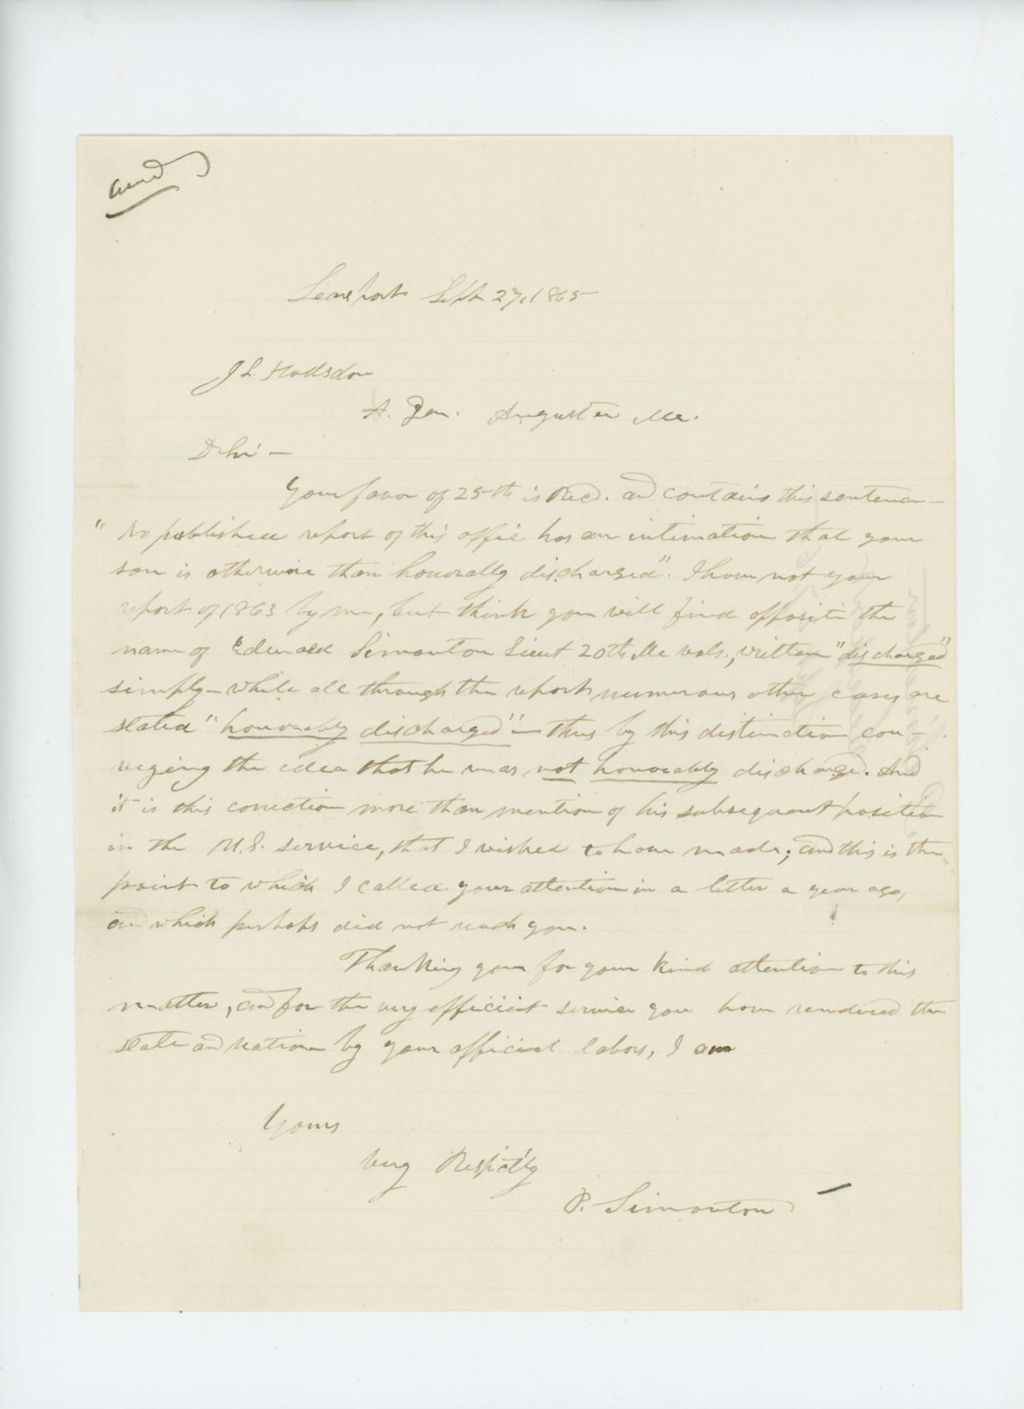 Searsport Sept 27, 1865
J L Hodsdon
A. Gen. Augusta Me.
D Sir —
Your favor of 25th is Recd. and contains this sentence —
"No published report of this office has an intimation that your
son is otherwise than honorably discharged". I have not your
report of 1863 by me, but think you will find opposite the
name of Edward Simonton Lieut 20th Me vols., written "discharged"
simply — while all through the report numerous other cases are
stated "honorably discharged" — thus by this distinction con-
veying the idea that he was not honorably discharged. And
it is this correction more than mention of his subsequent position
in the U.S. service, that I wished to have made; and this is the
point to which I called your attention in a letter a year ago,
and which perhaps did not reach you.
Thanking you for your kind attention to this
matter, and for the very efficient service you have rendered the
state and nation by your official labors, I am
Yours
Very Respectly
P. Simonton